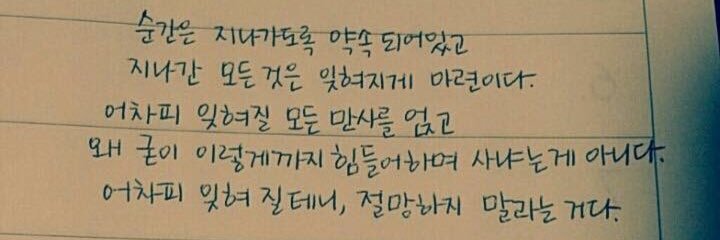 순간은 지나가도록 약속 되어있고
지나간 모든 것은 잊혀지게 마련이다.
어차피 잊혀질 모든 만사를 얹고
왜 굳이 이렇게까지 힘들어하며 사냐는게 아니다.
어차피 잊혀 질테니, 절망하지 말라는 거다.